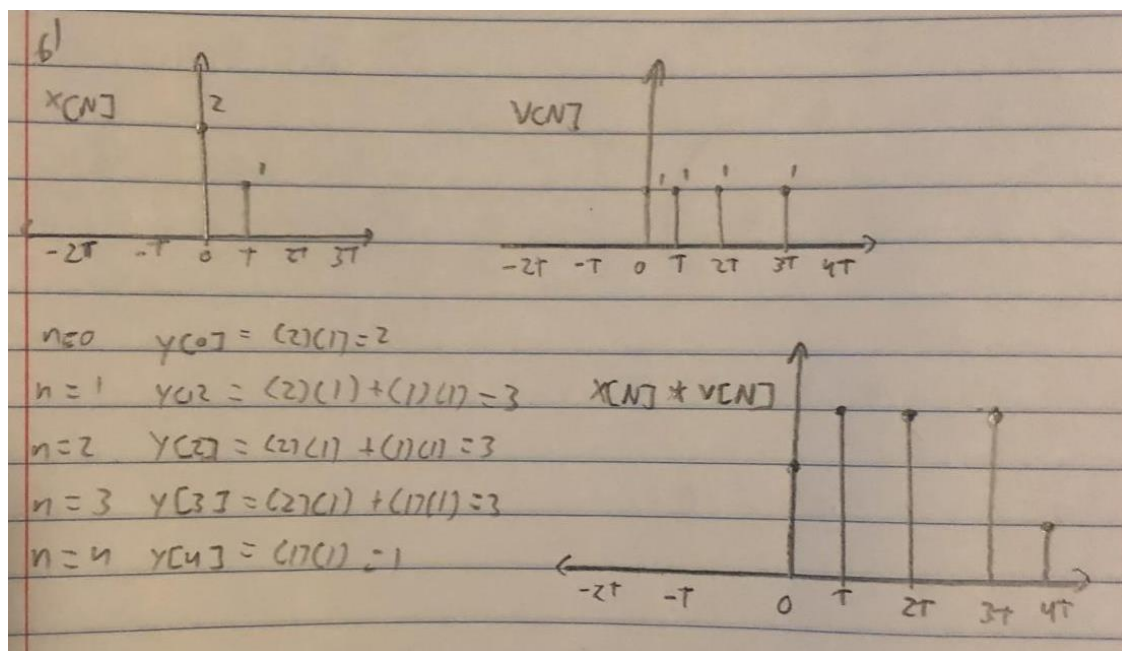 6)
X[N]
2
1
-2T -T 0 T 2T 3T
V[N]
1 1 1 1
-2T -T 0 T 2T 3T 4T
n=0 Y[0] = (2)(1)=2
n=1 Y[1] = (2)(1)+(1)(1)=3
n=2 Y[2] = (2)(1)+(1)(1)=3
n=3 Y[3] = (2)(1)+(1)(1)=3
n=4 Y[4] = (1)(1)=1
X[N] * V[N]
-2T -T 0 T 2T 3T 4T